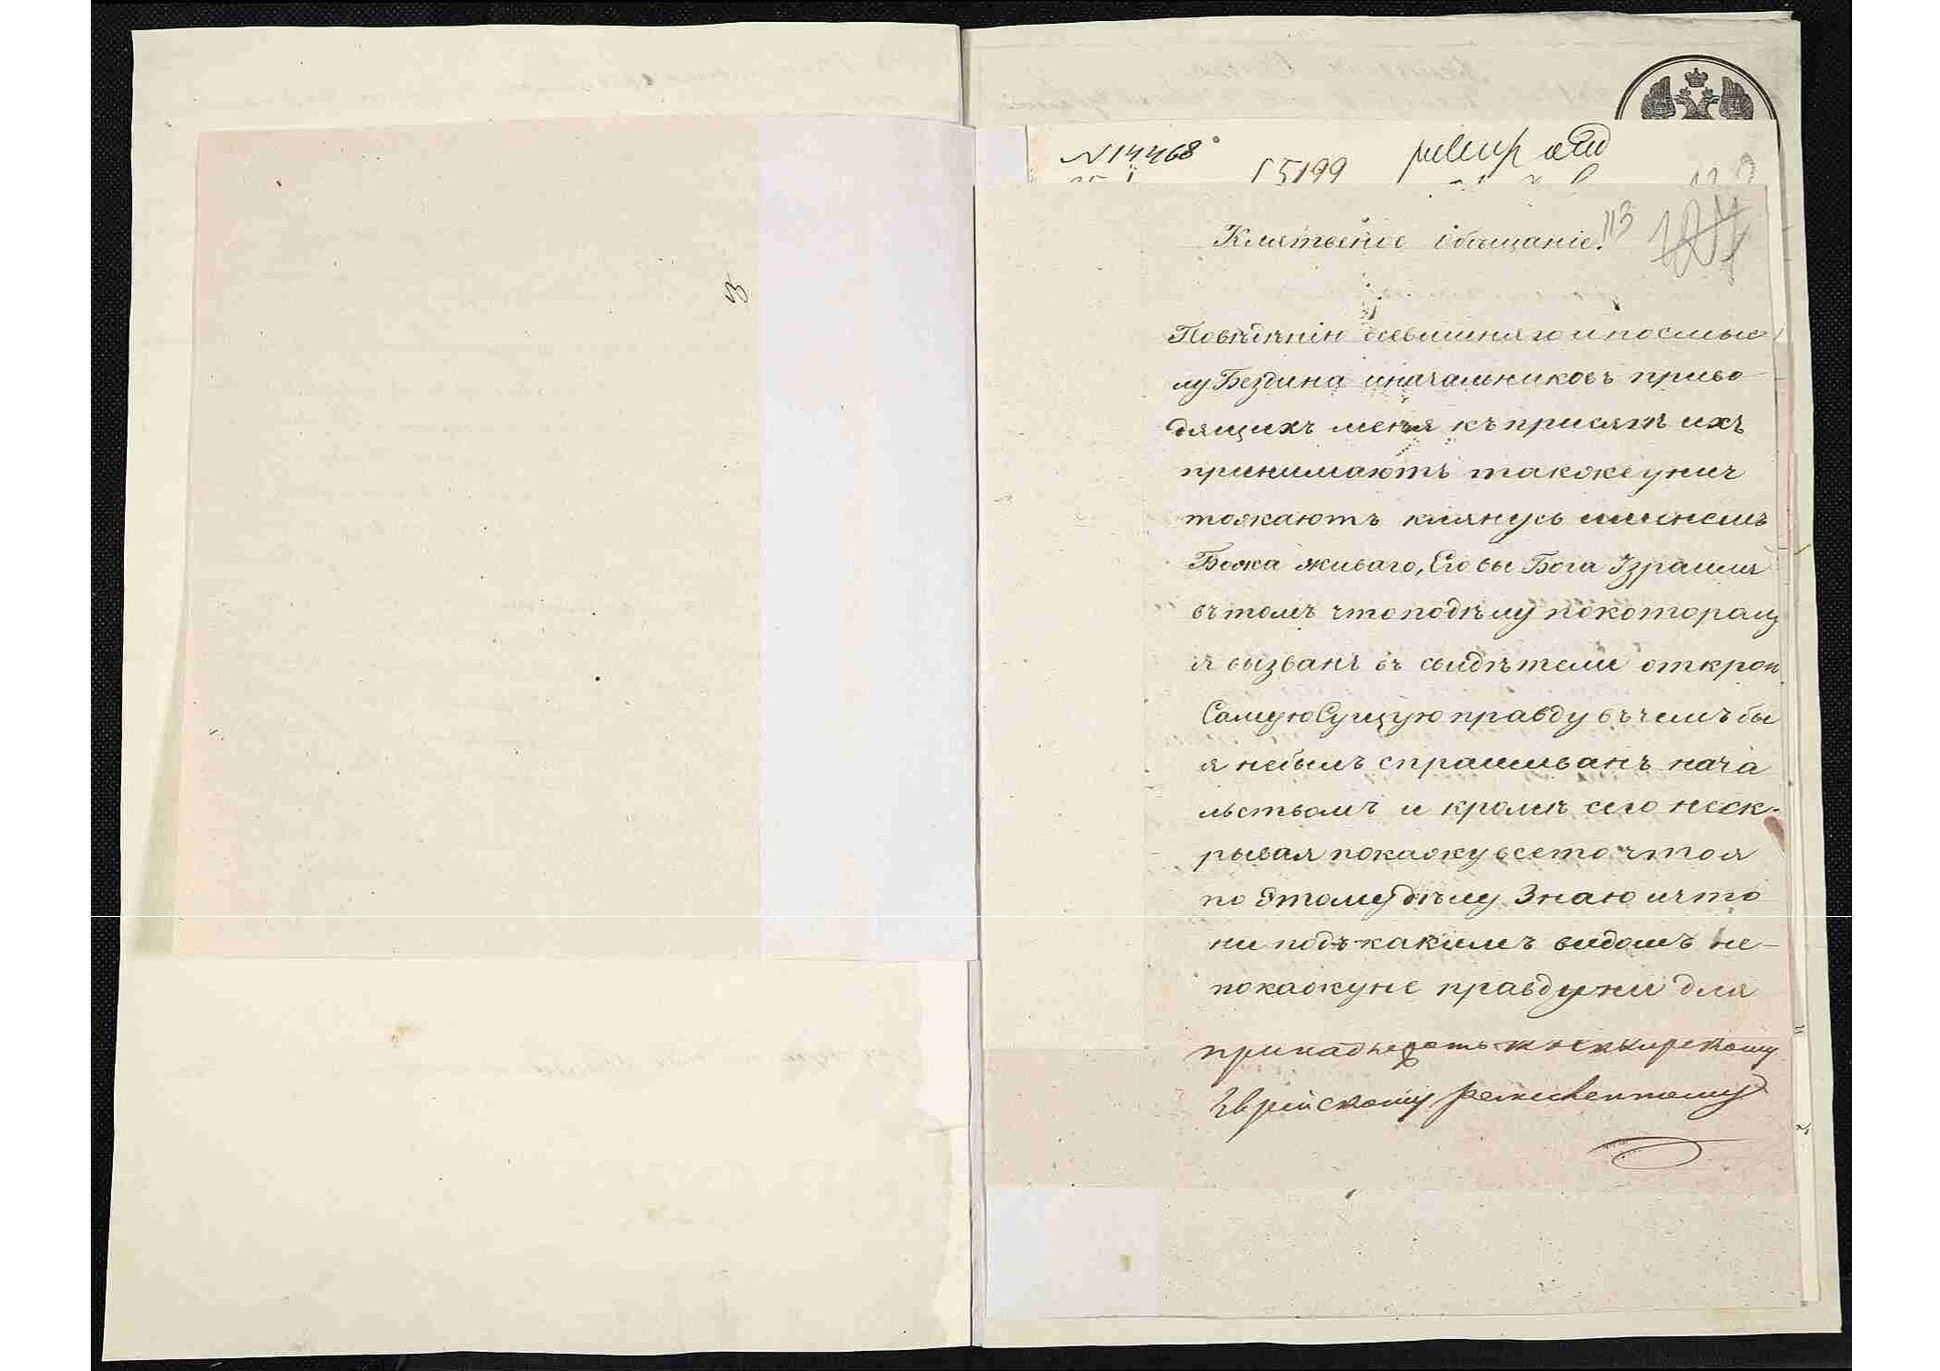 N 14468
15199
113
Клятвеное обѣщаніе.
Повѣдѣнію всевышняго и посмыс
лу Бездина иначальниковъ приво
дящихъ меня къ присягѣ ихъ
принимаютъ такоже унич
тожаютъ клянусь именемъ
Божа живаго, Еговы Бога Израиля
въ томъ что подѣлу покоторалу
я вызванъ въ свидѣтели открою
Самую Сущую правду въ чемъ бы
я небылъ спрашиванъ нача
льствомъ и кромѣ сего неск-
рывая покажу все то что я
по Этому дѣлу Знаю и что
ни подъ какимъ видомъ не-
покажу не правду ни для
принадлежать
Еврейскому